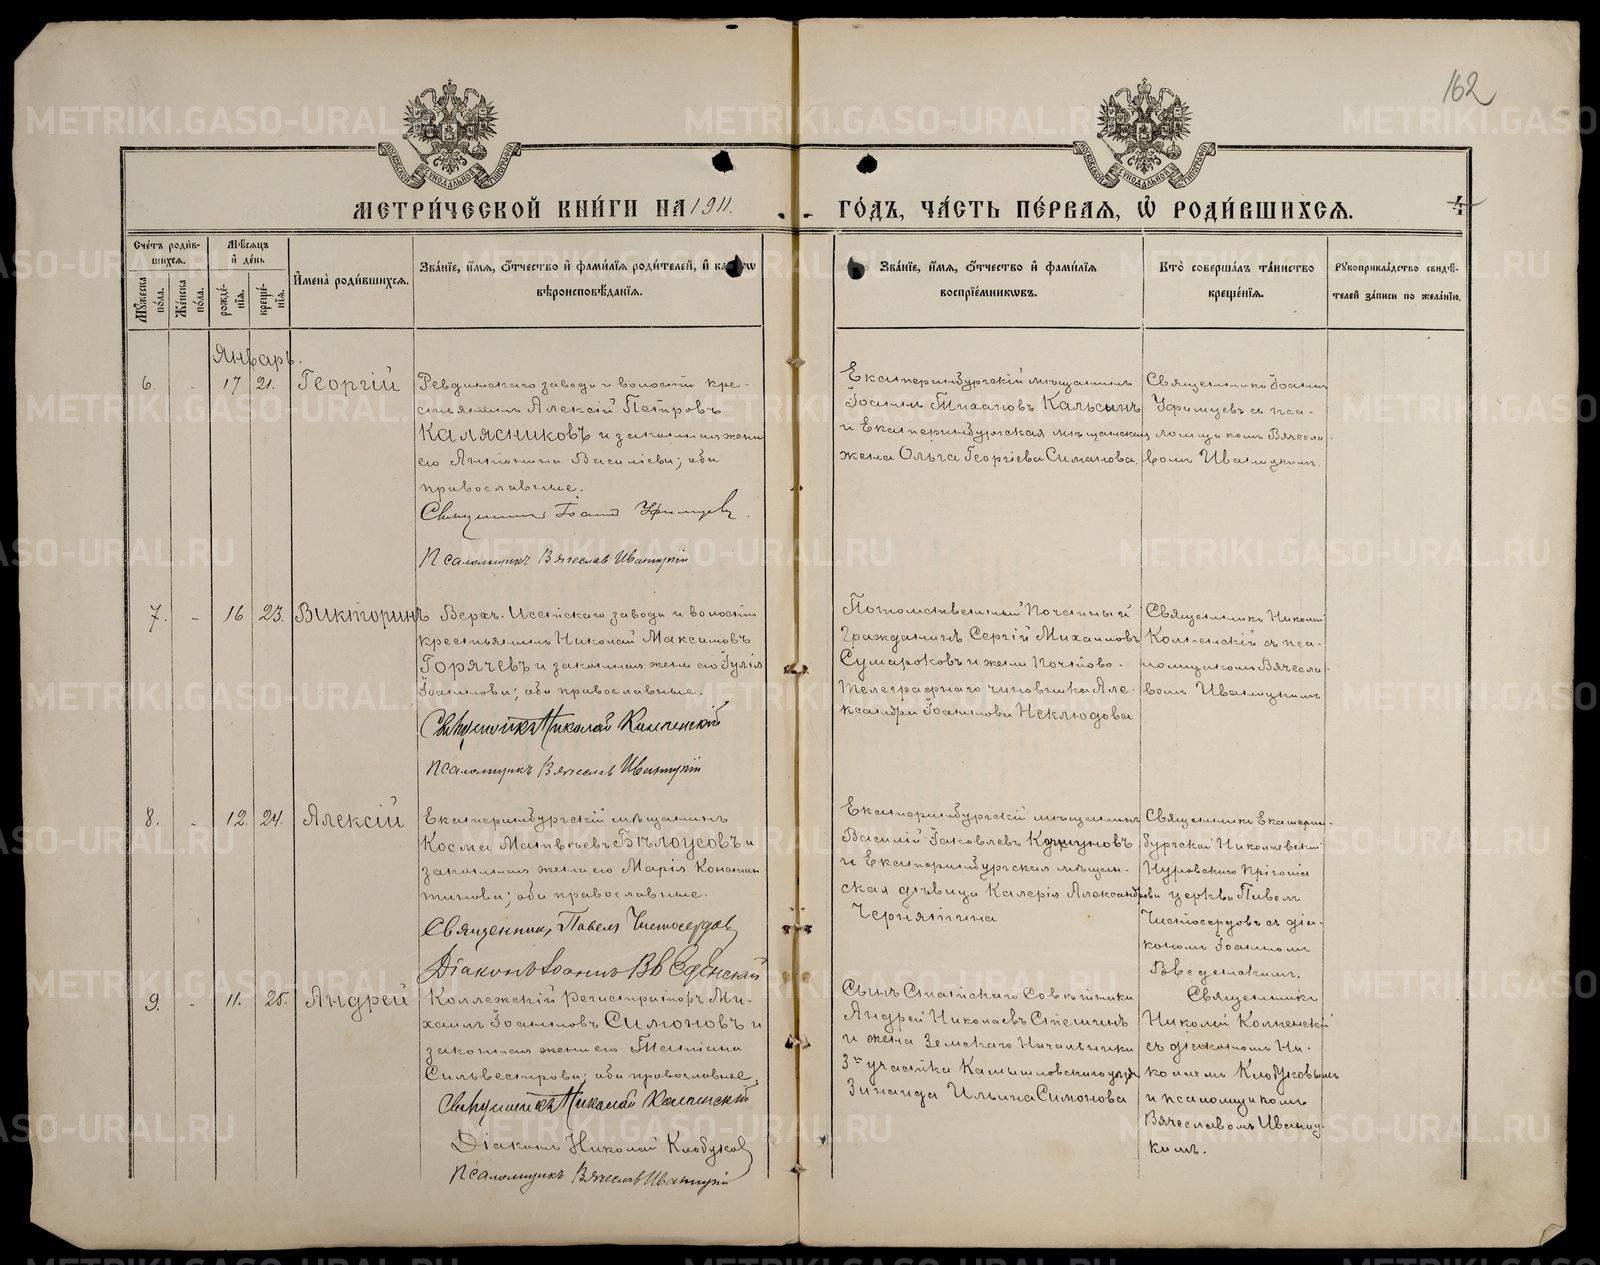 162
МЕТРИ́ЧЕСКОЙ КНИ́ГИ НА 1911. ГО́ДЪ, ЧА́СТЬ ПЕ́РВАЯ, Ѡ҆ РОДИ́ВШИХСЯ. 4
Сче́тъ роди́в-
шихся.
Мꙋ́жеска по́ла.
Же́нска по́ла.
Мѣ́сяцъ
и҆ де́нь
рожде́-нїя.
креще́-нїя.
И҆мена̀ роди́вшихся.
Зва́нїе, и҆́мя, ѻ҆́тчество и҆ фами́лїя роди́телей, и҆
вѣроисповѣ́данїя.
Зва́нїе, и҆́мя, ѻ҆́тчество и҆ фами́лїя
воспрїе́мниковъ.
Кто̀ соверша́лъ та́инство
креще́нїя.
Рꙋкоприкла́дство свидѣ́-
телей за́писи по жела́нїю.
Январь.
6. - 17 21. Георгій
Ревдинскаго завода и волости кре-
стьянинъ Алексій Петровъ
Калясниковъ и законная жена
его Антонина Василіева; оба
православные.
Священникъ Іоаннъ Уфимцевъ.
Псаломщикъ Вячеславъ Иваницкій
Екатеринбургскій мѣщанинъ
Іоаннъ Тихановъ Кальсинъ
и Екатеринбургская мѣщанская
жена Ольга Георгіева Симанова.
Священникъ Іоаннъ
Уфимцевъ съ пса-
ломщикомъ Вячесла-
вомъ Иваницкимъ.
7. - 16 23. Викторинъ
Верхъ-Исетскаго завода и волости
крестьянинъ Николай Максимовъ
Горячевъ и законная жена его Іулія
Іоаннова; оба православные.
Священникъ Николай Колченскій
Псаломщикъ Вячеславъ Иваницкій
Потомственный Почетный
Гражданинъ Сергій Михаиловъ
Сумароковъ и жена Почтово-
Телеграфнаго чиновника Але-
ксандра Іоаннова Неклюдова
Священникъ Николай
съ пса-
ломщикомъ Вячесла-
вомъ Иваницкимъ
8. - 12. 24. Алексій
Екатеринбургскій мѣщанинъ
Косма Матвѣевъ Бѣлоусовъ и
законная жена его Марія Констан-
тинова; оба православные.
Священникъ Павелъ Чистосердовъ
Діаконъ Іоаннъ Введенскій
Екатеринбургскій мѣщанинъ
Василій Іаковлевъ
и Екатеринбургская мѣщан-
ская дѣвица Калерія Александрова
Черняпина
Священникъ Екатерин-
бургской Николаевской
Нуровскаго Пріюта
церкви Павелъ
Чистосердовъ съ діа-
кономъ Іоанномъ
Введенскимъ.
9. - 11. 25. Андрей
Коллежскій Регистраторъ Ми-
хаилъ Іоанновъ Симоновъ и
законная жена его Татіана
Сильвестрова; оба православные
Священникъ Николай
Діаконъ Николай Клобуковъ
Псаломщикъ Вячеславъ Иваницкій
Сынъ Статскаго Совѣтника
Андрей Николаевъ Стешинъ
и жена Земскаго Начальника
3го участка Камышловскаго уѣзда
Зинаида Ильина Симонова
Священникъ
Николай
съ діакономъ Ни-
колаемъ Клобуковымъ
и псаломщикомъ
Вячеславомъ Иваниц-
кимъ.
METRIKI.GASO-URAL.RU